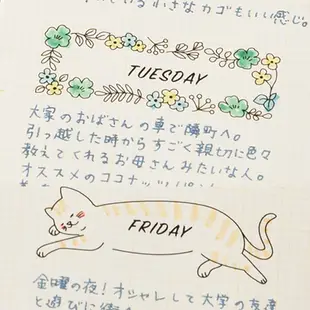 いる小さなカゴもいい感じ。
TUESDAY
大家のおばさんの車で隣町へ。
引っ越した時からすごく親切に色々
教えてくれるお母さんみたいな人。
オススメのココナッツ
FRIDAY
金曜の夜!オシャレして大学の友達
と遊びに